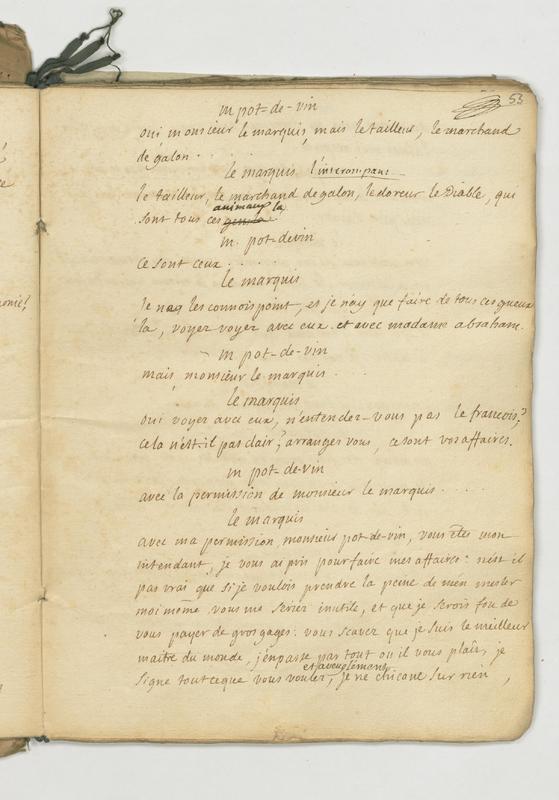 53
m pot-de-vin
oui monsieur le marquis, mais le tailleur, le marchand
de galon . . .
le marquis l'interompant
le tailleur, le marchand de galon, le doreur le Diable, qui
animaux la
sont tous ces gens la?
m. pot-devin
ce sont ceux . . . . .
le marquis
Je nay les connois point, et je n'ay que faire de tous ces gueux
la, voyez voyez avec eux et avec madame abraham.
m pot-de-vin
mais, monsieur le marquis . . .
le marquis
oui voyez avec eux, n'entendez-vous pas le francois?
cela n'est-il pas clair? arrangez vous, ce sont vos affaires.
m pot-de-vin
avec la permission de monsieur le marquis . . . . .
le marquis
avec ma permission, monsieur pot-de-vin, vous êtes mon
intendant, je vous ai pris pour faire mes affaires: n'est il
pas vrai que si je voulois prendre la peine de m'en mesler
moi mome vous me seriez inutile, et que je serois fou de
vous payer de gros gages. vous scavez que je suis le meilleur
maitre du monde, j'en passe par tout ou il vous plaît, je
et aveuglement
signe tout ce que vous voulez, je ne chicane sur rien,